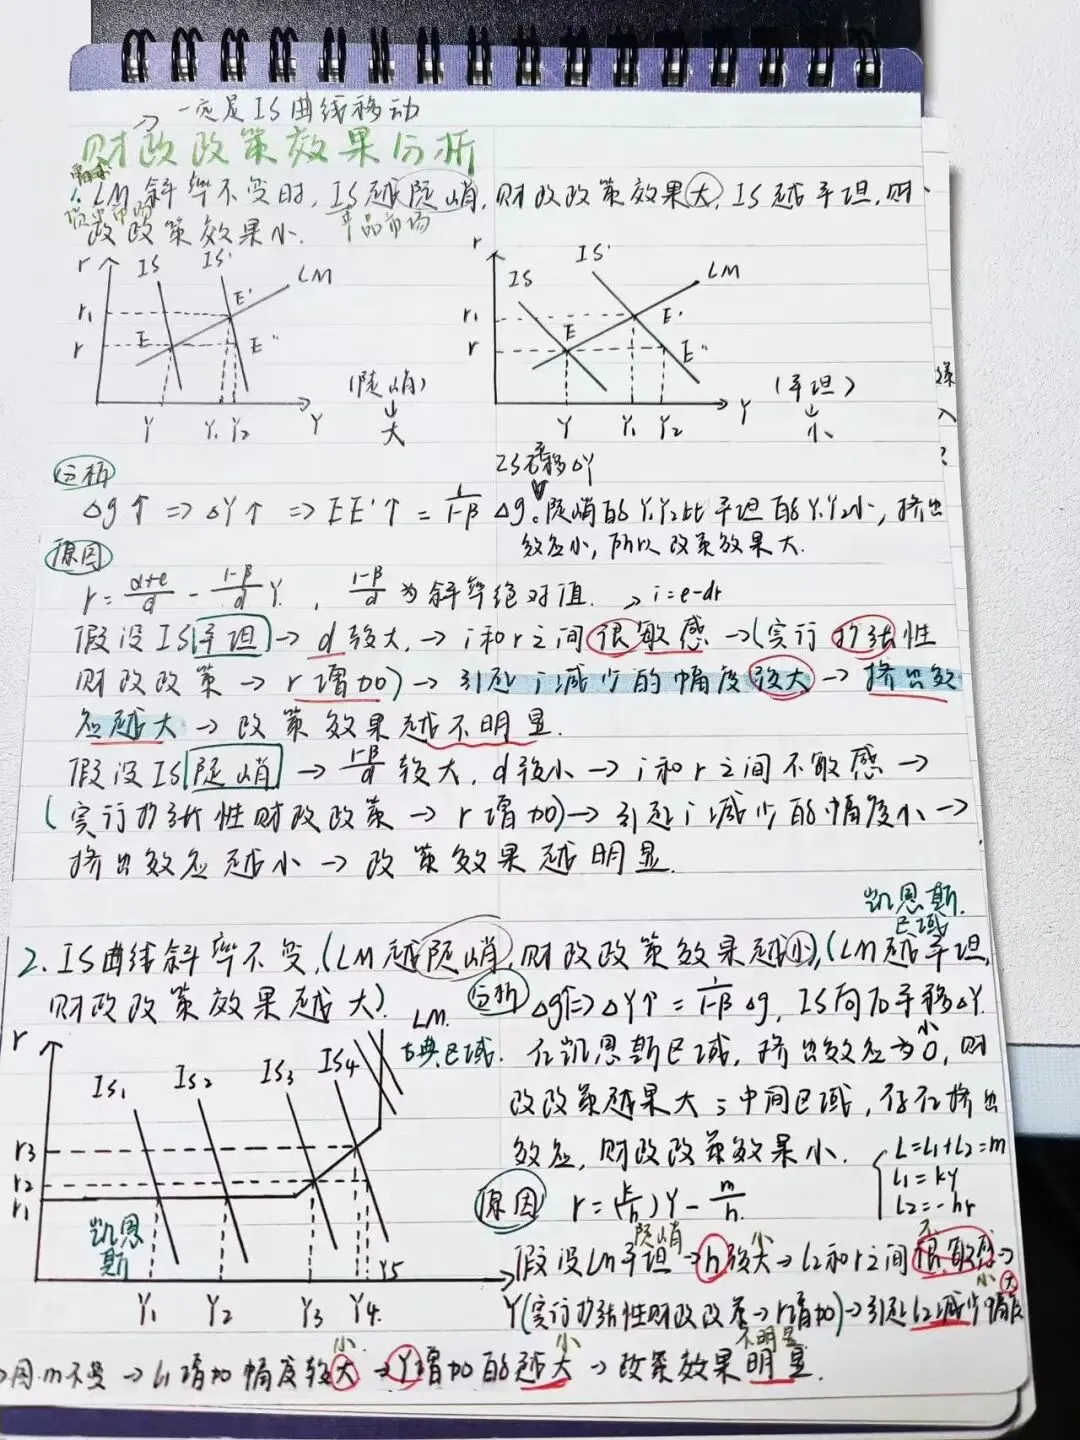 → 一定是IS曲线移动
财政政策效果分析
1. LM斜率不变时, IS越陡峭, 财政政策效果大, IS越平坦, 财
货币市场
产品市场
政政策效果小.
r IS IS' LM
r₁ E'
r E E"
Y Y₁ Y₂ Y
(陡峭)
↓
大
r IS IS' LM
r₁ E'
r E E"
Y Y₁ Y₂ Y
(平坦)
↓
小
分析
IS右移ΔY
Δg↑ => ΔY↑ => EE'↑ = 1/1-β Δg。陡峭的Y₁Y₂比平坦的Y₁Y₂小, 挤出
效应小, 所以政策效果大.
原因
r = α+e/d - 1-β/d Y. , 1-β/d 为斜率绝对值. → i=e-dr
假设IS平坦→d较大,→i和r之间很敏感→(实行扩张性
财政政策→r增加)→引起i减少的幅度较大→挤出效
应越大→政策效果越不明显.
假设IS陡峭→1-β/d较大, d较小→i和r之间不敏感→
(实行扩张性财政政策→r增加)→引起i减少的幅度小→
挤出效应越小→政策效果越明显.
凯恩斯
区域
2. IS曲线斜率不变,(LM越陡峭,财政政策效果越小),(LM越平坦,
财政政策效果越大)
分析 Δg↑=>ΔY↑=1/1-β Δg, IS向右平移ΔY.
LM.
古典区域.
在凯恩斯区域, 挤出效应为0, 财
小
政政策越果大；中间区域, 存在挤出
效应, 财政政策效果小.
L=L₁+L₂=m
L₁=ky
L₂=-hr
r
IS₁ IS₂ IS₃ IS₄
r₃
r₂
r₁
凯恩
斯
Y₁ Y₂ Y₃ Y₄ Y₅ Y
原因 r=(k/h)Y - m/h.
陡峭 小 不
假设LM平坦→h较大→L₂和r之间很敏感→
小 大
(实行扩张性财政政策→r增加)→引起L₂减少幅度
小 小 不明显
→因m不变→L₁增加幅度较大→Y增加的越大→政策效果明显.